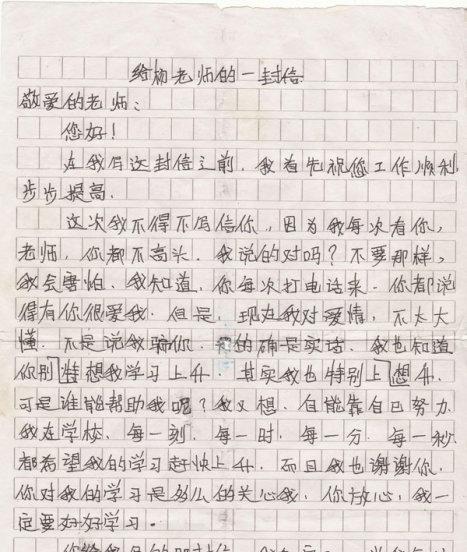 给杨老师的一封信
敬爱的老师：
您好！
在我写这封信之前，我首先祝您工作顺利
步步提高．
这次我不得不写信你，因为我每次看你，
老师，你都不高兴．我说的对吗？不要那样，
我会害怕．我知道，你每次打电话来．你都说
得有你很爱我．但是，现在我对爱情，不太大
懂．不是说我骗你．的确是实话．我也知道
你别特想我学习上升．其实我也特别上想升．
可是谁能帮助我呢？我又想．自能靠自己努力
我在学校．每一刻．每一时．每一分．每一秒
都希望我的学习赶快上升．而且我也谢谢你．
你对我的学习是多么的关心我．你放心，我一
定要好好学习．